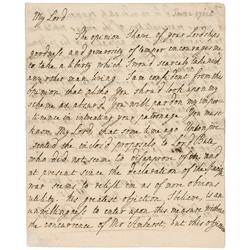 My Lord
The opinion I have of your Lordships
goodness and generosity of temper encourages me
to take a liberty which I would scarcely take with
any other man living. I am confident from this
opinion that altho you should look upon my
scheme as absurd you will pardon my impor-
tunity in intreating your patronage. You must
know My Lord, that some time ago I
sent the inclosed proposals to Lord Bute
who did not seem to disapprove of them, and
at present since the declaration of the Spanish
war seems to relish them as of more obvious
utility. His greatest objection I believe, is an
unwillingness to enter upon this measure without
the concurrence of Mr Amherst, but this